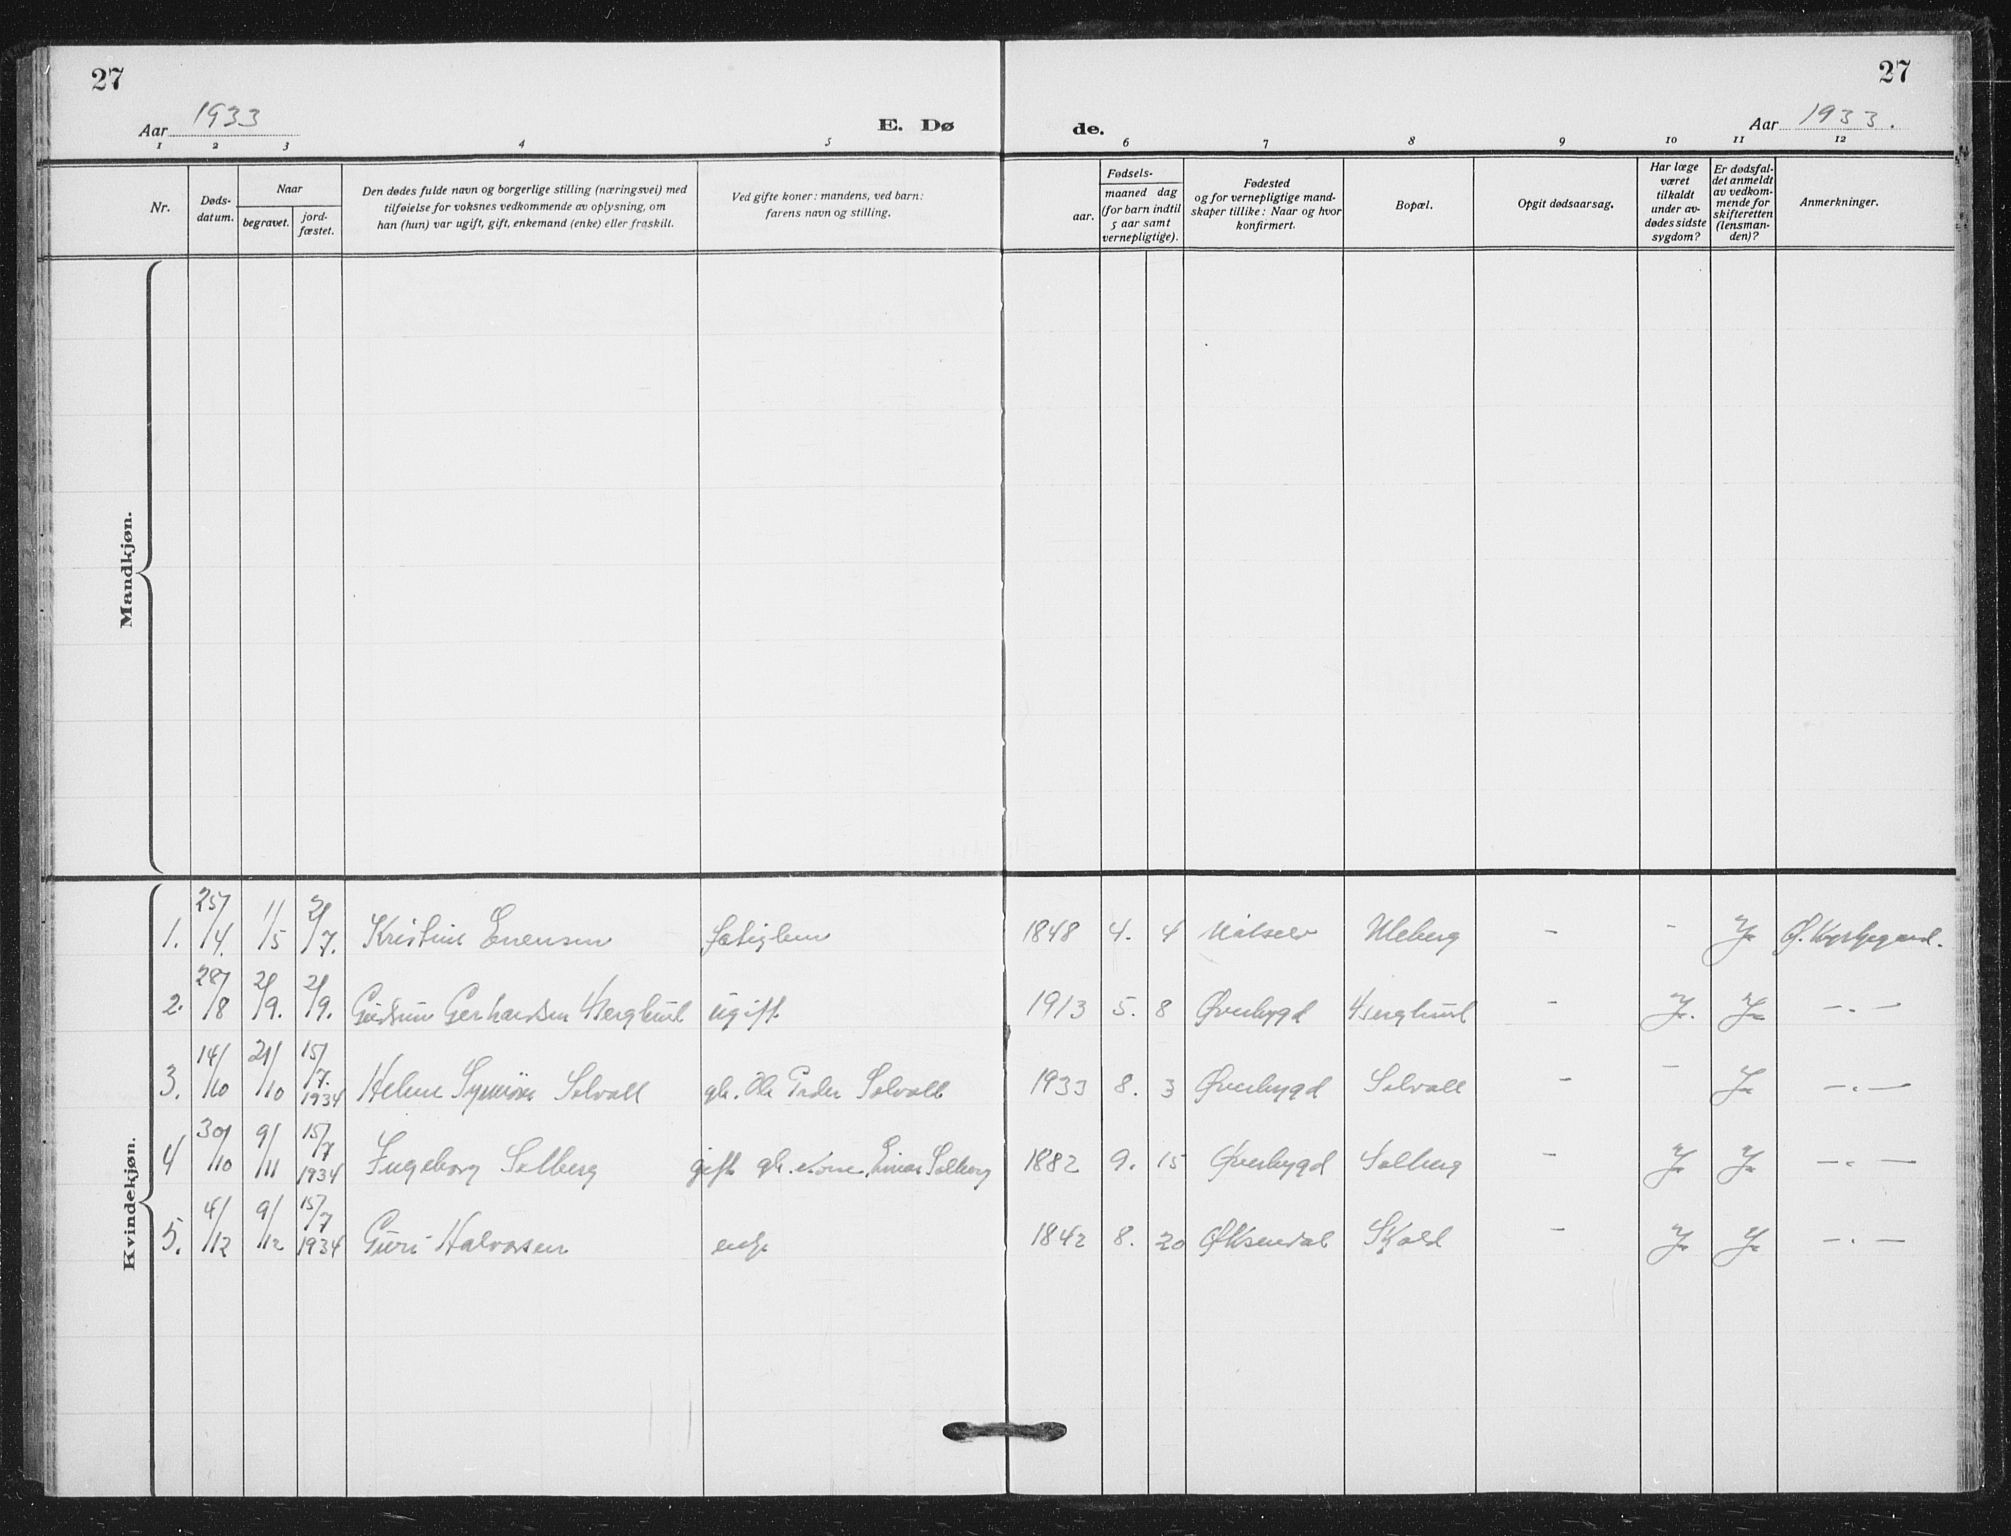 27
27
Aar 1933
E. Dø
de.
Aar 1933.
1 2 3 4 5 6 7 8 9 10 11 12
Nr.
Døds-
datum.
Naar
begravet.
jord-
fæstet.
Den dødes fulde navn og borgerlige stilling (næringsvei) med
tilføielse for voksnes vedkommende av oplysning, om
han (hun) var ugift, gift, enkemand (enke) eller fraskilt.
Ved gifte koner: mandens, ved barn:
farens navn og stilling.
Fødsels-
aar.
maaned dag
(for barn indtil
5 aar samt
vernepligtige).
Fødested
og for vernepligtige mand-
skaper tillike: Naar og hvor
konfirmert.
Bopæl.
Opgit dødsaarsag.
Har læge
været
tilkaldt
under av-
dødes sidste
sygdom?
Er dødsfal-
det anmeldt
av vedkom-
mende for
skifteretten
(lensman-
den)?
Anmerkninger.
Mandkjøn.
Kvindekjøn.
1. 25/4. 1/5 2/7. Kristine Enensen 1848 4. 4 Målselv Uleberg - - Ja Ø. Kyrkjegaard.
2. 28/8 2/9. 2/9. Gudrun Gerhardsen Berglund ugift 1913 5. 8 Øverbygd Berglund - Ja. Ja -"-
3. 14/10 21/10 15/7. 1934 Helene Synnöve Solvoll gb. Ole Peder Solvoll 1933 8. 3 Øverbygd Solvoll - - Ja -"-
4 30/10 9/11 15/7 1934 Ingeborg Solberg gift gb. kone Einar Solberg 1882 9. 15 Øverbygd Solberg - Ja Ja -"-
5. 4/12 9/12 15/7 1934 Guri Halvorsen enke 1842 8. 20 Øksendal Skjold - Ja Ja -"-